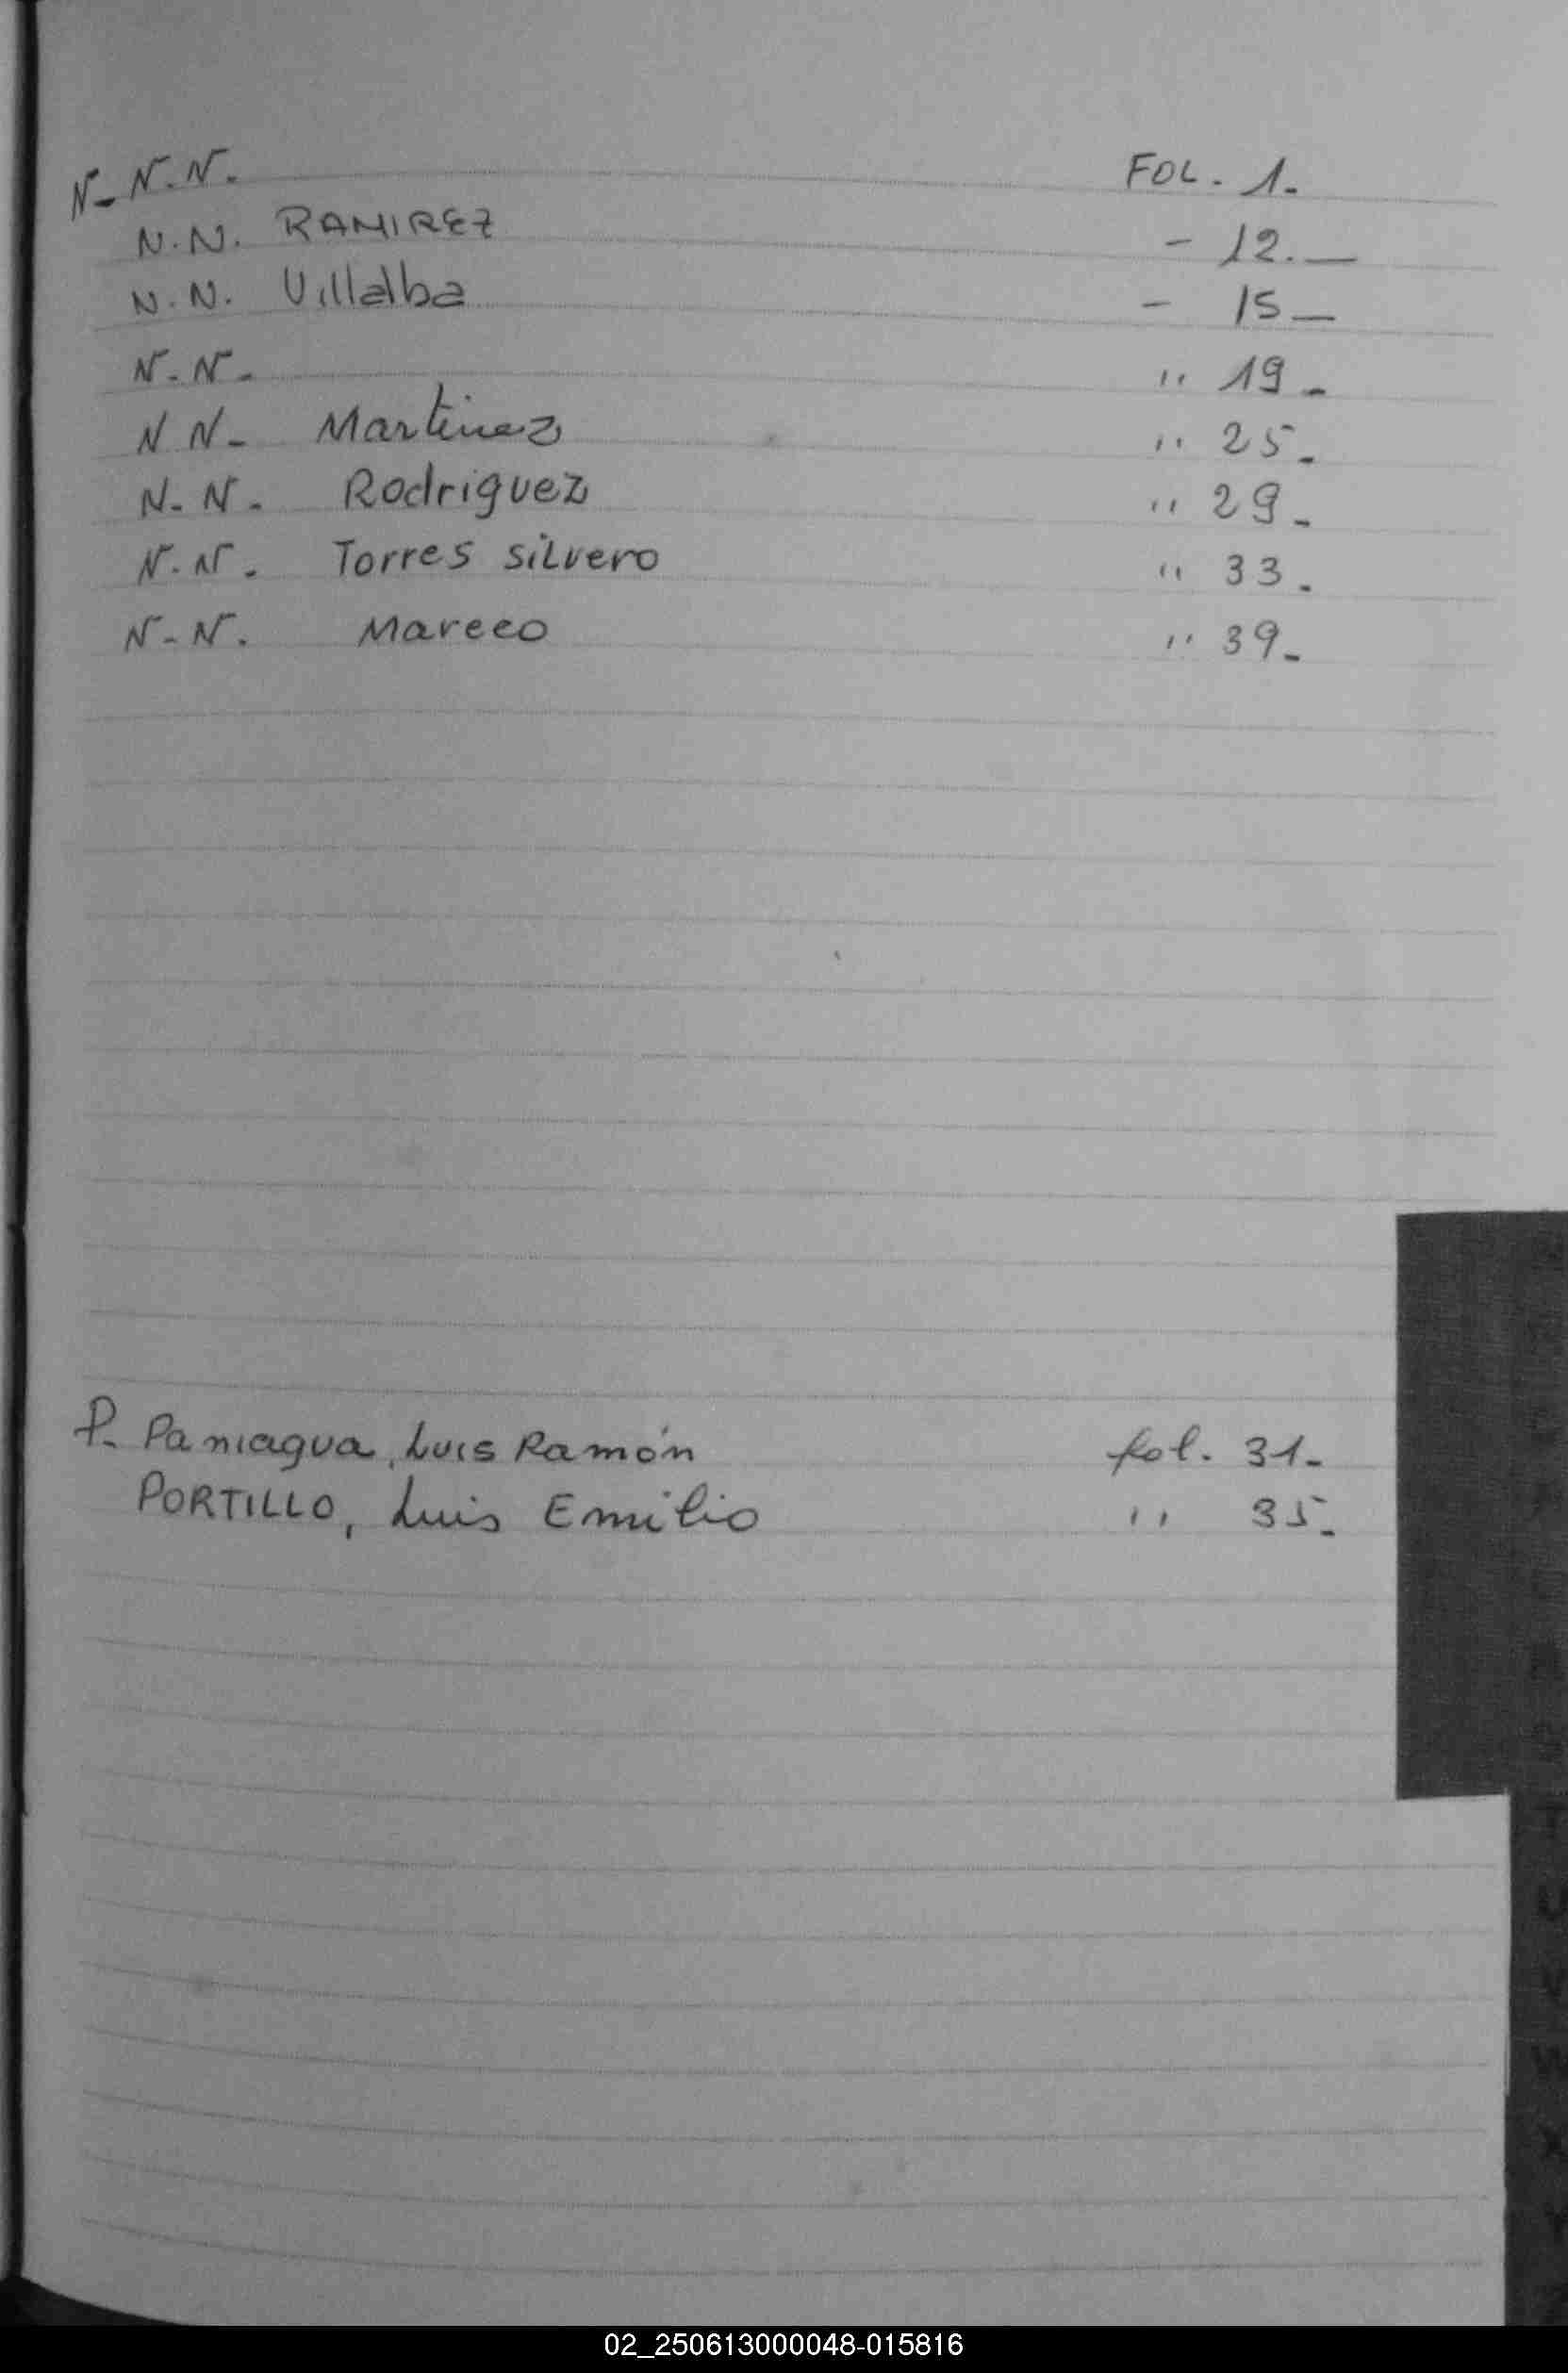 N- N.N. FOL. 1.
N.N. RAMIREZ - 12.—
N.N. Villalba - 15—
N.N. " 19-
N N- Martinez " 25-
N.N. Rodriguez " 29-
N.N. Torres Silvero " 33.
N-N. Mareco " 39-
P. Paniagua, Luis Ramón fol. 31-
PORTILLO, Luis Emilio " 35-
02_250613000048-015816